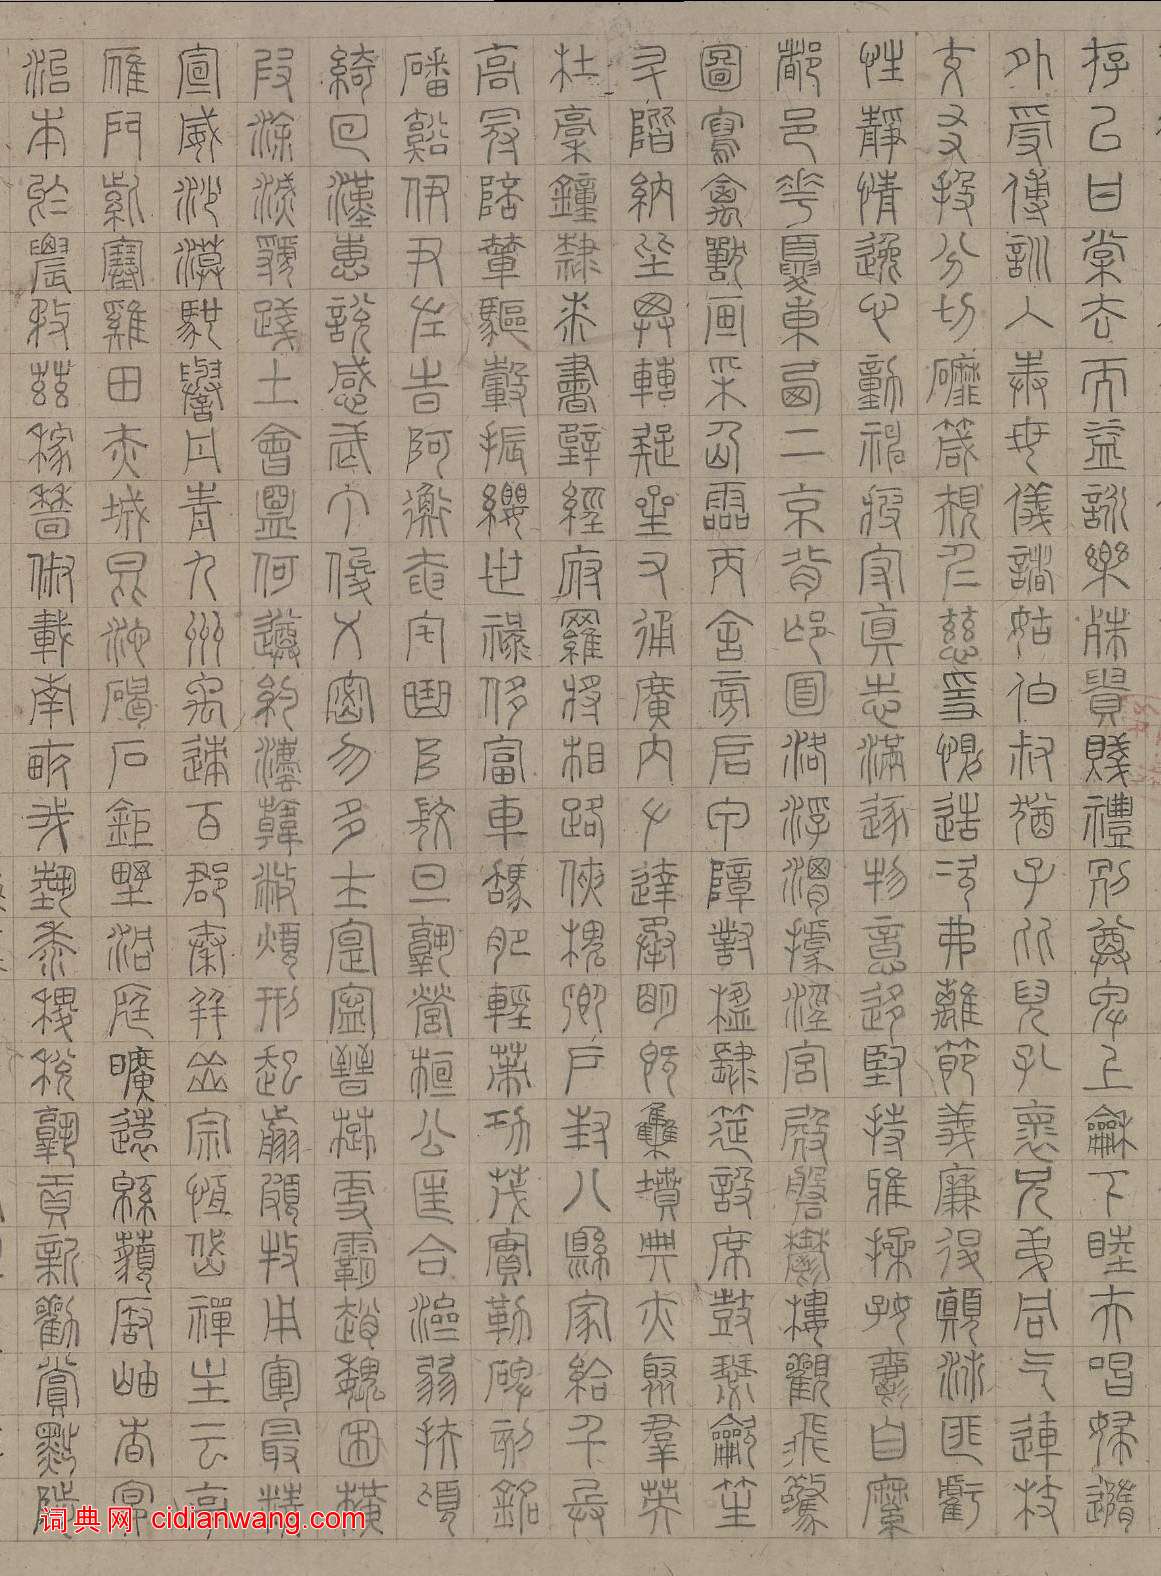 存以甘棠去而益詠樂殊貴賤禮別尊卑上和下睦夫唱婦隨
外受傅訓入奉母儀諸姑伯叔猶子比兒孔懷兄弟同氣連枝
交友投分切磨箴規仁慈隱惻造次弗離節義廉退顛沛匪虧
性靜情逸心動神疲守真志滿逐物意移堅持雅操好爵自縻
都邑華夏東西二京背邙面洛浮渭據涇宮殿盤鬱樓觀飛驚
圖寫禽獸畫彩仙靈丙舍傍啟甲帳對楹肆筵設席鼓瑟吹笙
升階納陛弁轉疑星右通廣內左達承明既集墳典亦聚群英
杜稾鍾隸漆書壁經府羅將相路俠槐卿戶封八縣家給千兵
高冠陪輦驅轂振纓世祿侈富車駕肥輕策功茂實勒碑刻銘
磻谿伊尹佐時阿衡奄宅曲阜微旦孰營桓公匡合濟弱扶傾
綺回漢惠說感武丁俊乂密勿多士寔寧晉楚更霸趙魏困橫
假途滅虢踐土會盟何遵約法韓弊煩刑起翦頗牧用軍最精
宣威沙漠馳譽丹青九州禹跡百郡秦并嶽宗恆岱禪主云亭
雁門紫塞雞田赤城昆池碣石鉅野洞庭曠遠綿邈巖岫杳冥
治本於農務茲稼穡俶載南畝我藝黍稷稅熟貢新勸賞黜陟
词典网 cidianwang.com